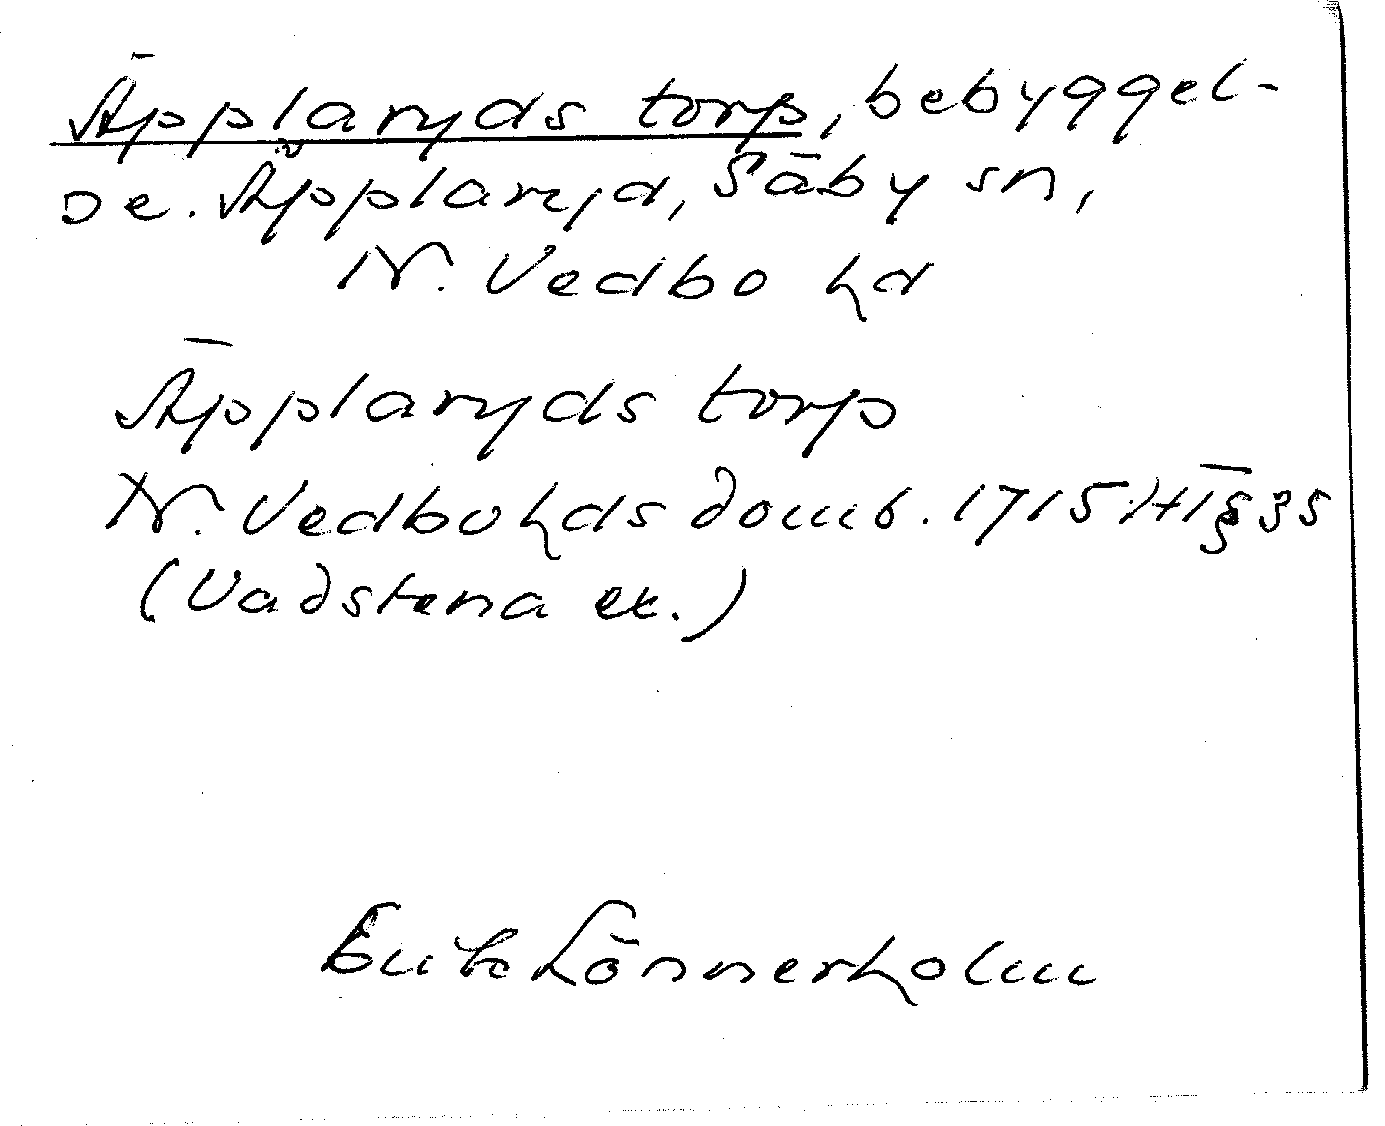 Äpplaryds torp, bebyggel-
se. Äpplaryd, Säby sn,
N. Vedbo hd
Äpplaryds torp
N. Vedbo hds domb. 1715 HT § 35
(Vadstena ex.)
Erik Lönnerholm